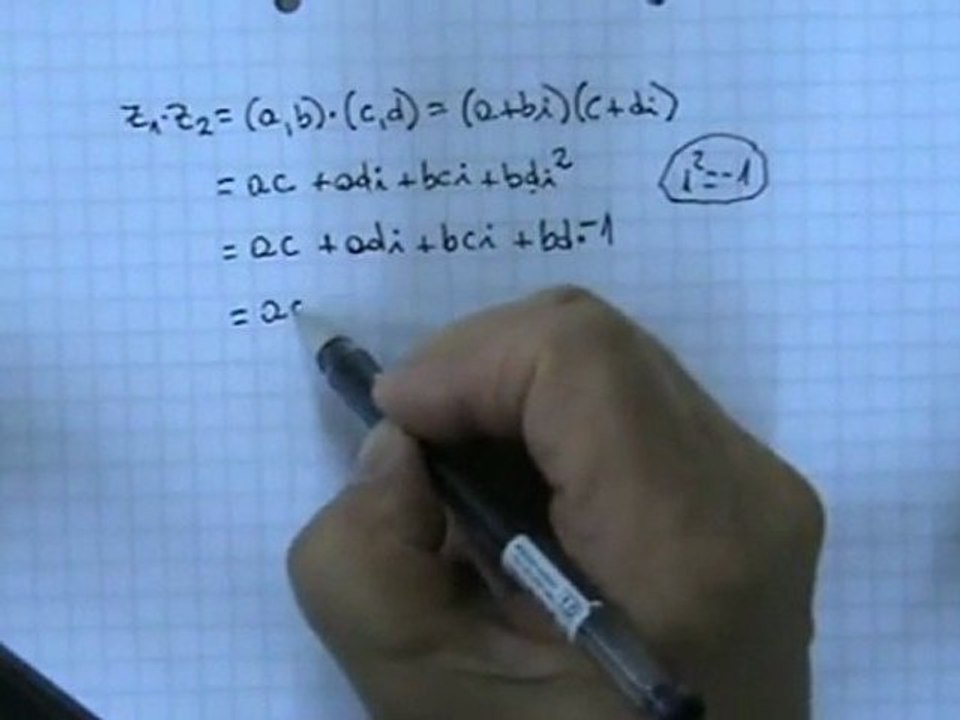 z₁·z₂ = (a,b)·(c,d) = (a+bi)(c+di)
= ac + adi + bci + bdi²
i²=-1
= ac + adi + bci + bd·-1
= ac